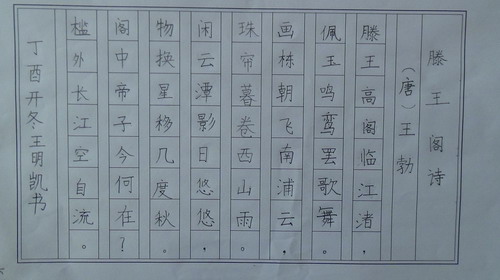 滕王阁诗
（唐）王勃
滕王高阁临江渚，
佩玉鸣鸾罢歌舞。
画栋朝飞南浦云，
珠帘暮卷西山雨。
闲云潭影日悠悠，
物换星移几度秋。
阁中帝子今何在？
槛外长江空自流。
丁酉开冬王明凯书